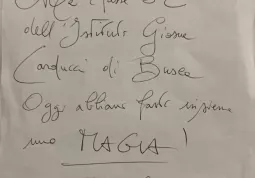 classe 5C
dell'Istituto Giosue
Carducci di Busca
Oggi abbiamo fatto insieme
una MAGIA!